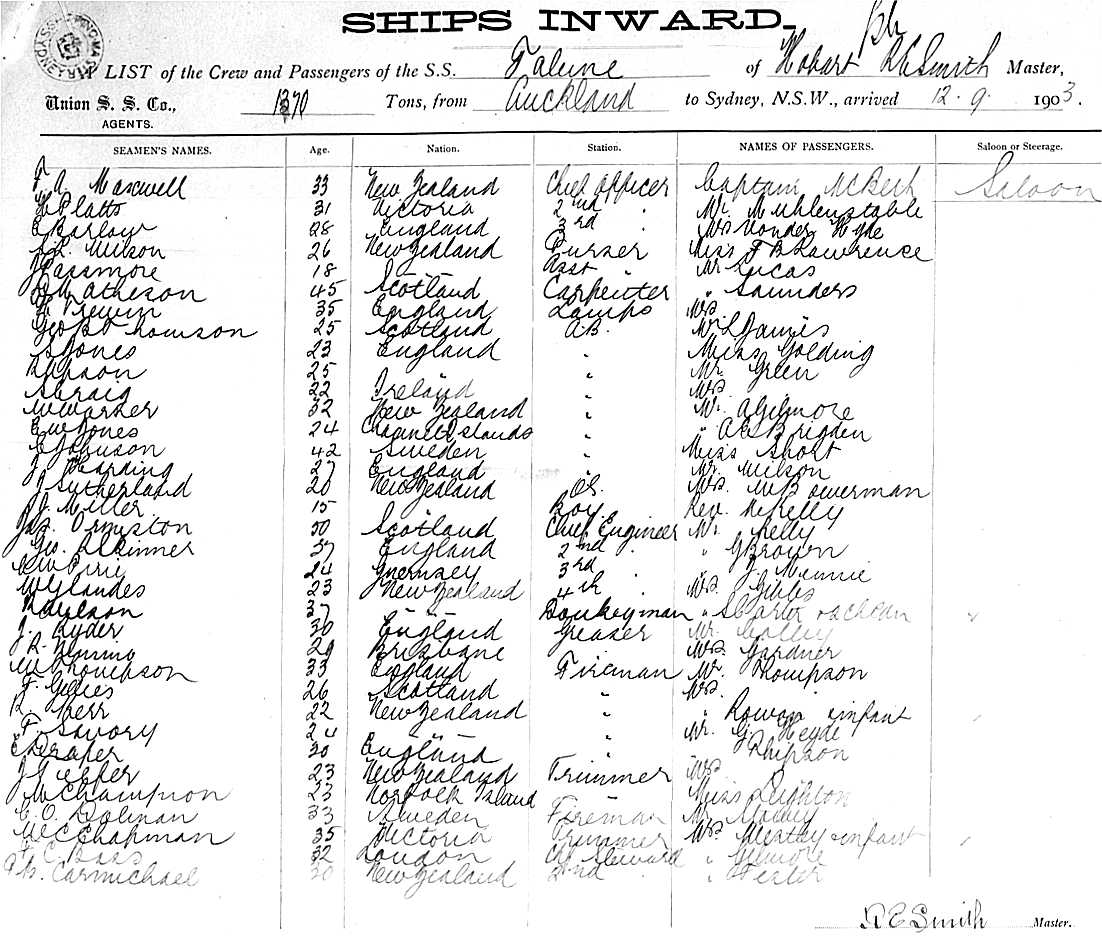 SHIPS INWARD.
A LIST of the Crew and Passengers of the S.S. Talune of Hobart R E Smith Master,
Union S. S. Co., AGENTS. 1370 Tons, from Auckland to Sydney, N.S.W., arrived 12.9. 1903.
SEAMEN'S NAMES. Age. Nation. Station. NAMES OF PASSENGERS. Saloon or Steerage.
Maxwell 33 New Zealand Chief Officer Captain McBeth Saloon
Platts 31 Victoria 2nd " Mr. Muhlenstable
Barlow 28 England 3rd " Mrs Vonder Hyde
Wilson 26 New Zealand Purser Miss Lawrence
Passmore 18 " Asst Mr Lucas
Matheson 45 Scotland Carpenter " Saunders
Trewin 35 England Lamps Mrs "
Geo Thomson 25 Scotland A.B. Mr L Jamies
S Jones 23 England " Miss Golding
25 " " Mr. Green
S Craig 22 Ireland " Mrs "
W Warner 32 New Zealand " Mr. A Gilmore
E W Jones 24 Channel Islands " " Brigden
C Johnson 42 Sweden " Miss Short
J Harding 27 England " Mr. Wilson
J Sutherland 20 New Zealand O.S. Mrs. Bowerman
J. Miller 15 " Boy Rev. Kelly
Jas. Ormiston 50 Scotland Chief Engineer Mr. Kelly
Geo. Skinner 37 England 2nd " " G Brown
Pirie 24 Guernsey 3rd " " J Minnie
Wylandes 23 New Zealand 4th " Mrs. Gibbs
37 " Donkeyman "
J. Ryder 30 England Greaser Mr. Colley
J. R. Nimmo 29 Brisbane " Mrs Gardner
W Thompson 33 England Fireman Mr. Thompson
F. Gillies 26 Scotland " Mrs. "
R. Kerr 22 New Zealand " " Rowan & infant
F. Savory 24 " " Mr. G. Heyde
E Draper 30 England " " Phipson
23 New Zealand Trimmer Mrs "
Champion 23 Norfolk Island " Miss Leighton
C. O. Dolinan 33 Sweden Fireman Mr.
W C Chapman 35 Victoria Trimmer Mrs. & infant
C. Bass 32 London Ch. Steward " Gilmore
Carmichael 30 New Zealand 2nd "
R E Smith Master.